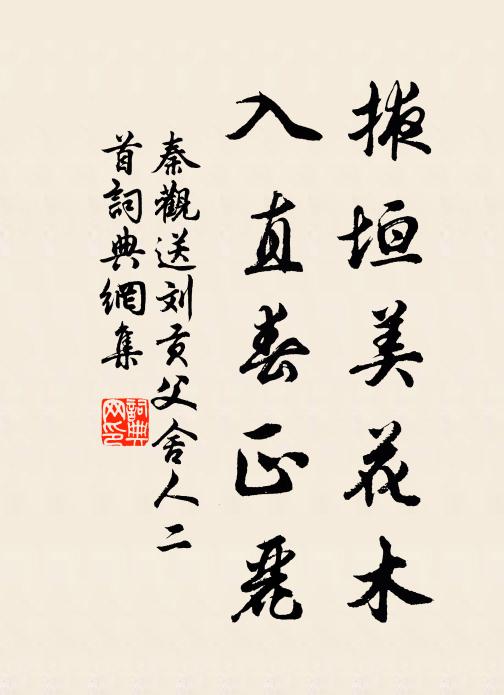 掖垣美花木
入直春正麗
秦觀送刘贡父舍人二
首詞典網集
詞典
网印